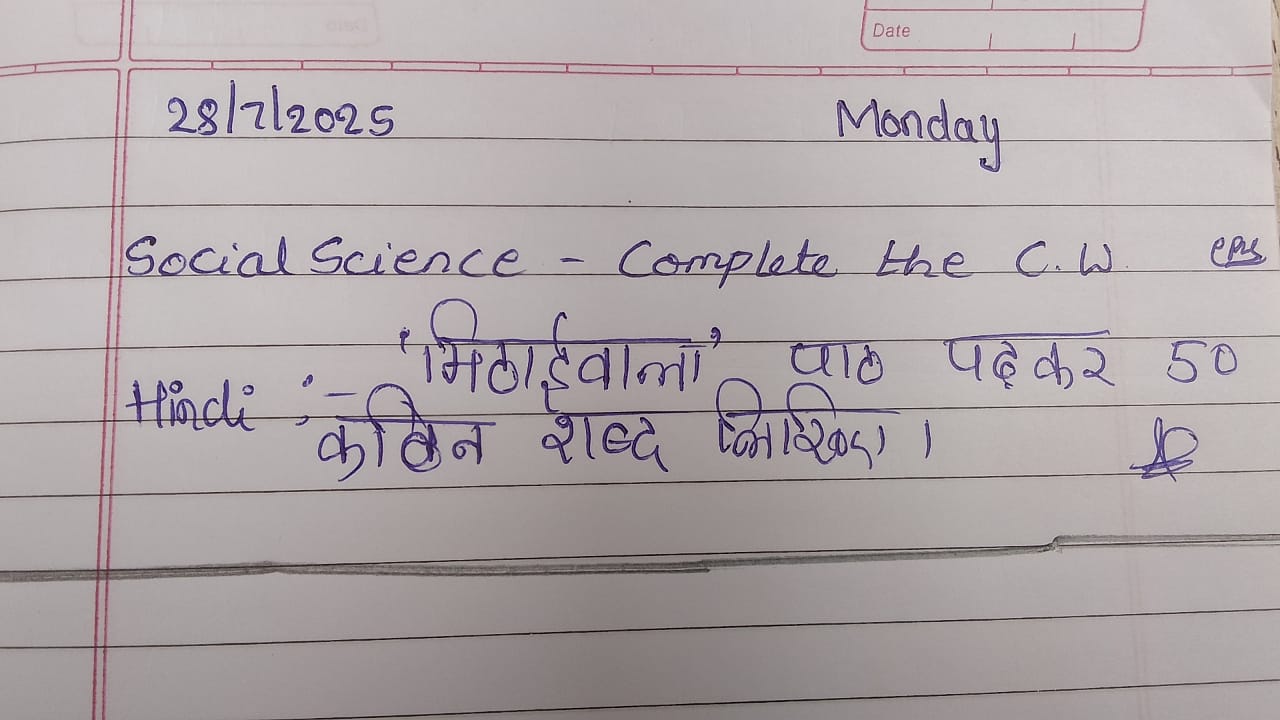 Date
28/7/2025 Monday
Social Science - Complete the C.W.
'मिठाईवाला' पाठ पढ़कर 50
Hindi :-
कठिन शब्द लिखिए।